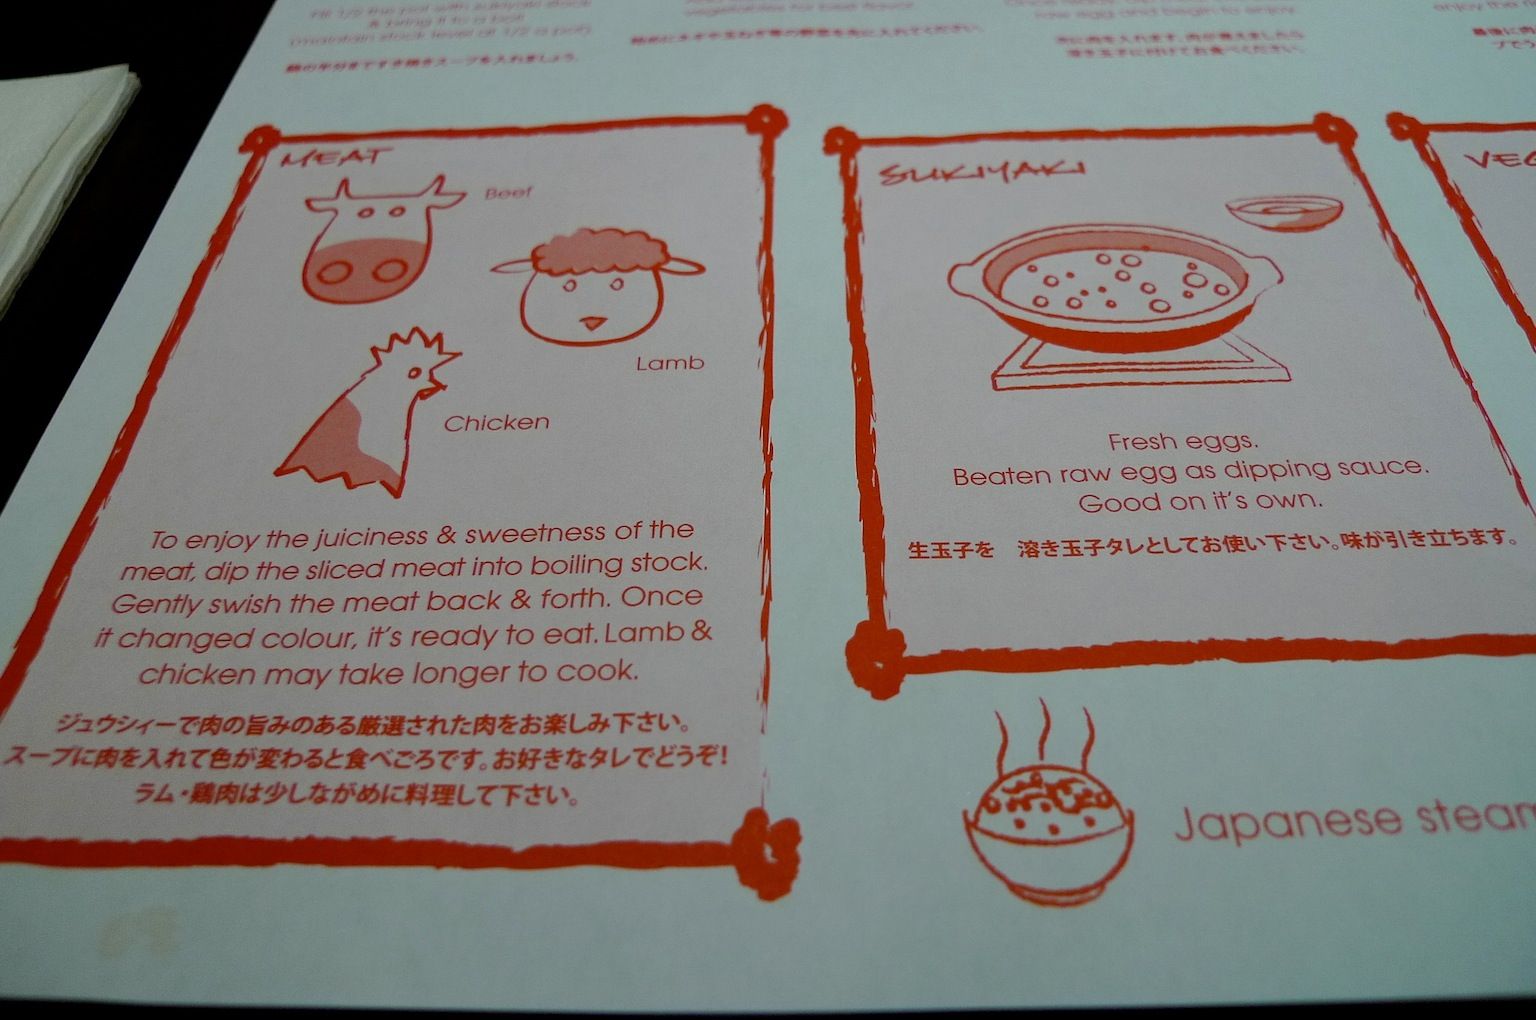 Fill 1/2 the pot with sukiyaki stock
& bring it to a boil
(maintain stock level at 1/2 a pot)
鍋の半分まですき焼きスープを入れましょう。
vegetables for best flavor.
始めにネギや玉ねぎ等の野菜を先に入れてください。
raw egg and begin to enjoy.
先に肉を入れます。肉が煮えましたら
溶き玉子に付けてお食べください。
enjoy the
最後に
MEAT
Beef
Lamb
Chicken
To enjoy the juiciness & sweetness of the
meat, dip the sliced meat into boiling stock.
Gently swish the meat back & forth. Once
it changed colour, it's ready to eat. Lamb &
chicken may take longer to cook.
ジュウシィーで肉の旨みのある厳選された肉をお楽しみ下さい。
スープに肉を入れて色が変わると食べごろです。お好きなタレでどうぞ!
ラム・鶏肉は少しながめに料理して下さい。
SUKIYAKI
Fresh eggs.
Beaten raw egg as dipping sauce.
Good on it's own.
生玉子を　溶き玉子タレとしてお使い下さい。味が引き立ちます。
VEG
Japanese steam